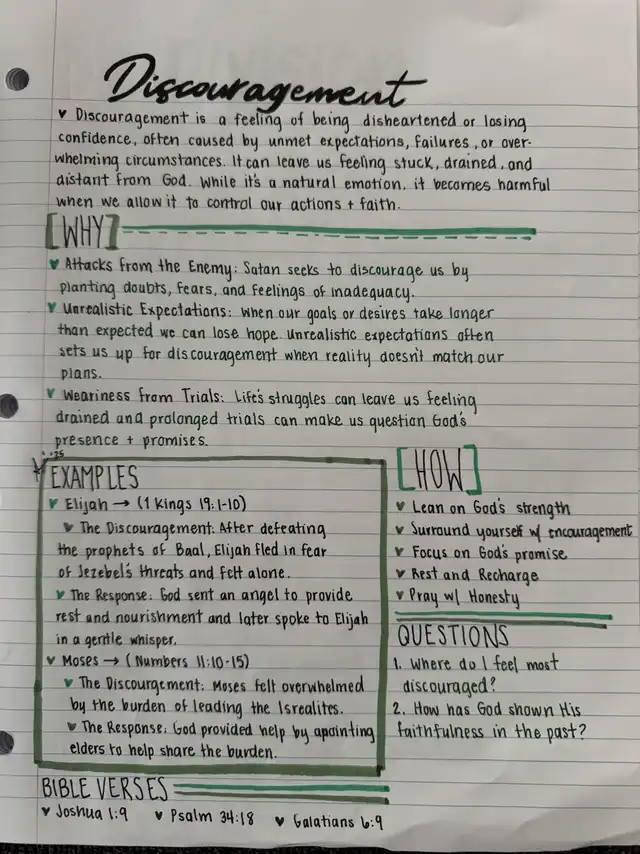 Discouragement
♥ Discouragement is a feeling of being disheartened or losing
confidence, often caused by unmet expectations, failures, or over-
whelming circumstances. It can leave us feeling stuck, drained, and
distant from God. While it's a natural emotion, it becomes harmful
when we allow it to control our actions + faith.
[WHY]
♥ Attacks from the Enemy: Satan seeks to discourage us by
planting doubts, fears, and feelings of inadequacy.
♥ Unrealistic Expectations: When our goals or desires take longer
than expected we can lose hope. Unrealistic expectations often
sets us up for discouragement when reality doesn't match our
plans.
♥ Weariness from Trials: Life's struggles can leave us feeling
drained and prolonged trials can make us question God's
presence + promises.
EXAMPLES
♥ Elijah → (1 Kings 19:1-10)
♥ The Discouragement: After defeating
the prophets of Baal, Elijah fled in fear
of Jezebel's threats and felt alone.
♥ The Response: God sent an angel to provide
rest and nourishment and later spoke to Elijah
in a gentle whisper.
♥ Moses → (Numbers 11:10-15)
♥ The Discourgement: Moses felt overwhelmed
by the burden of leading the Isrealites.
♥ The Response: God provided help by apointing
elders to help share the burden.
[HOW]
♥ Lean on God's strength
♥ Surround yourself w/ encouragement
♥ Focus on God's promise
♥ Rest and Recharge
♥ Pray w/ Honesty
QUESTIONS
1. Where do I feel most
discouraged?
2. How has God shown His
faithfulness in the past?
BIBLE VERSES
♥ Joshua 1:9 ♥ Psalm 34:18 ♥ Galatians 6:9